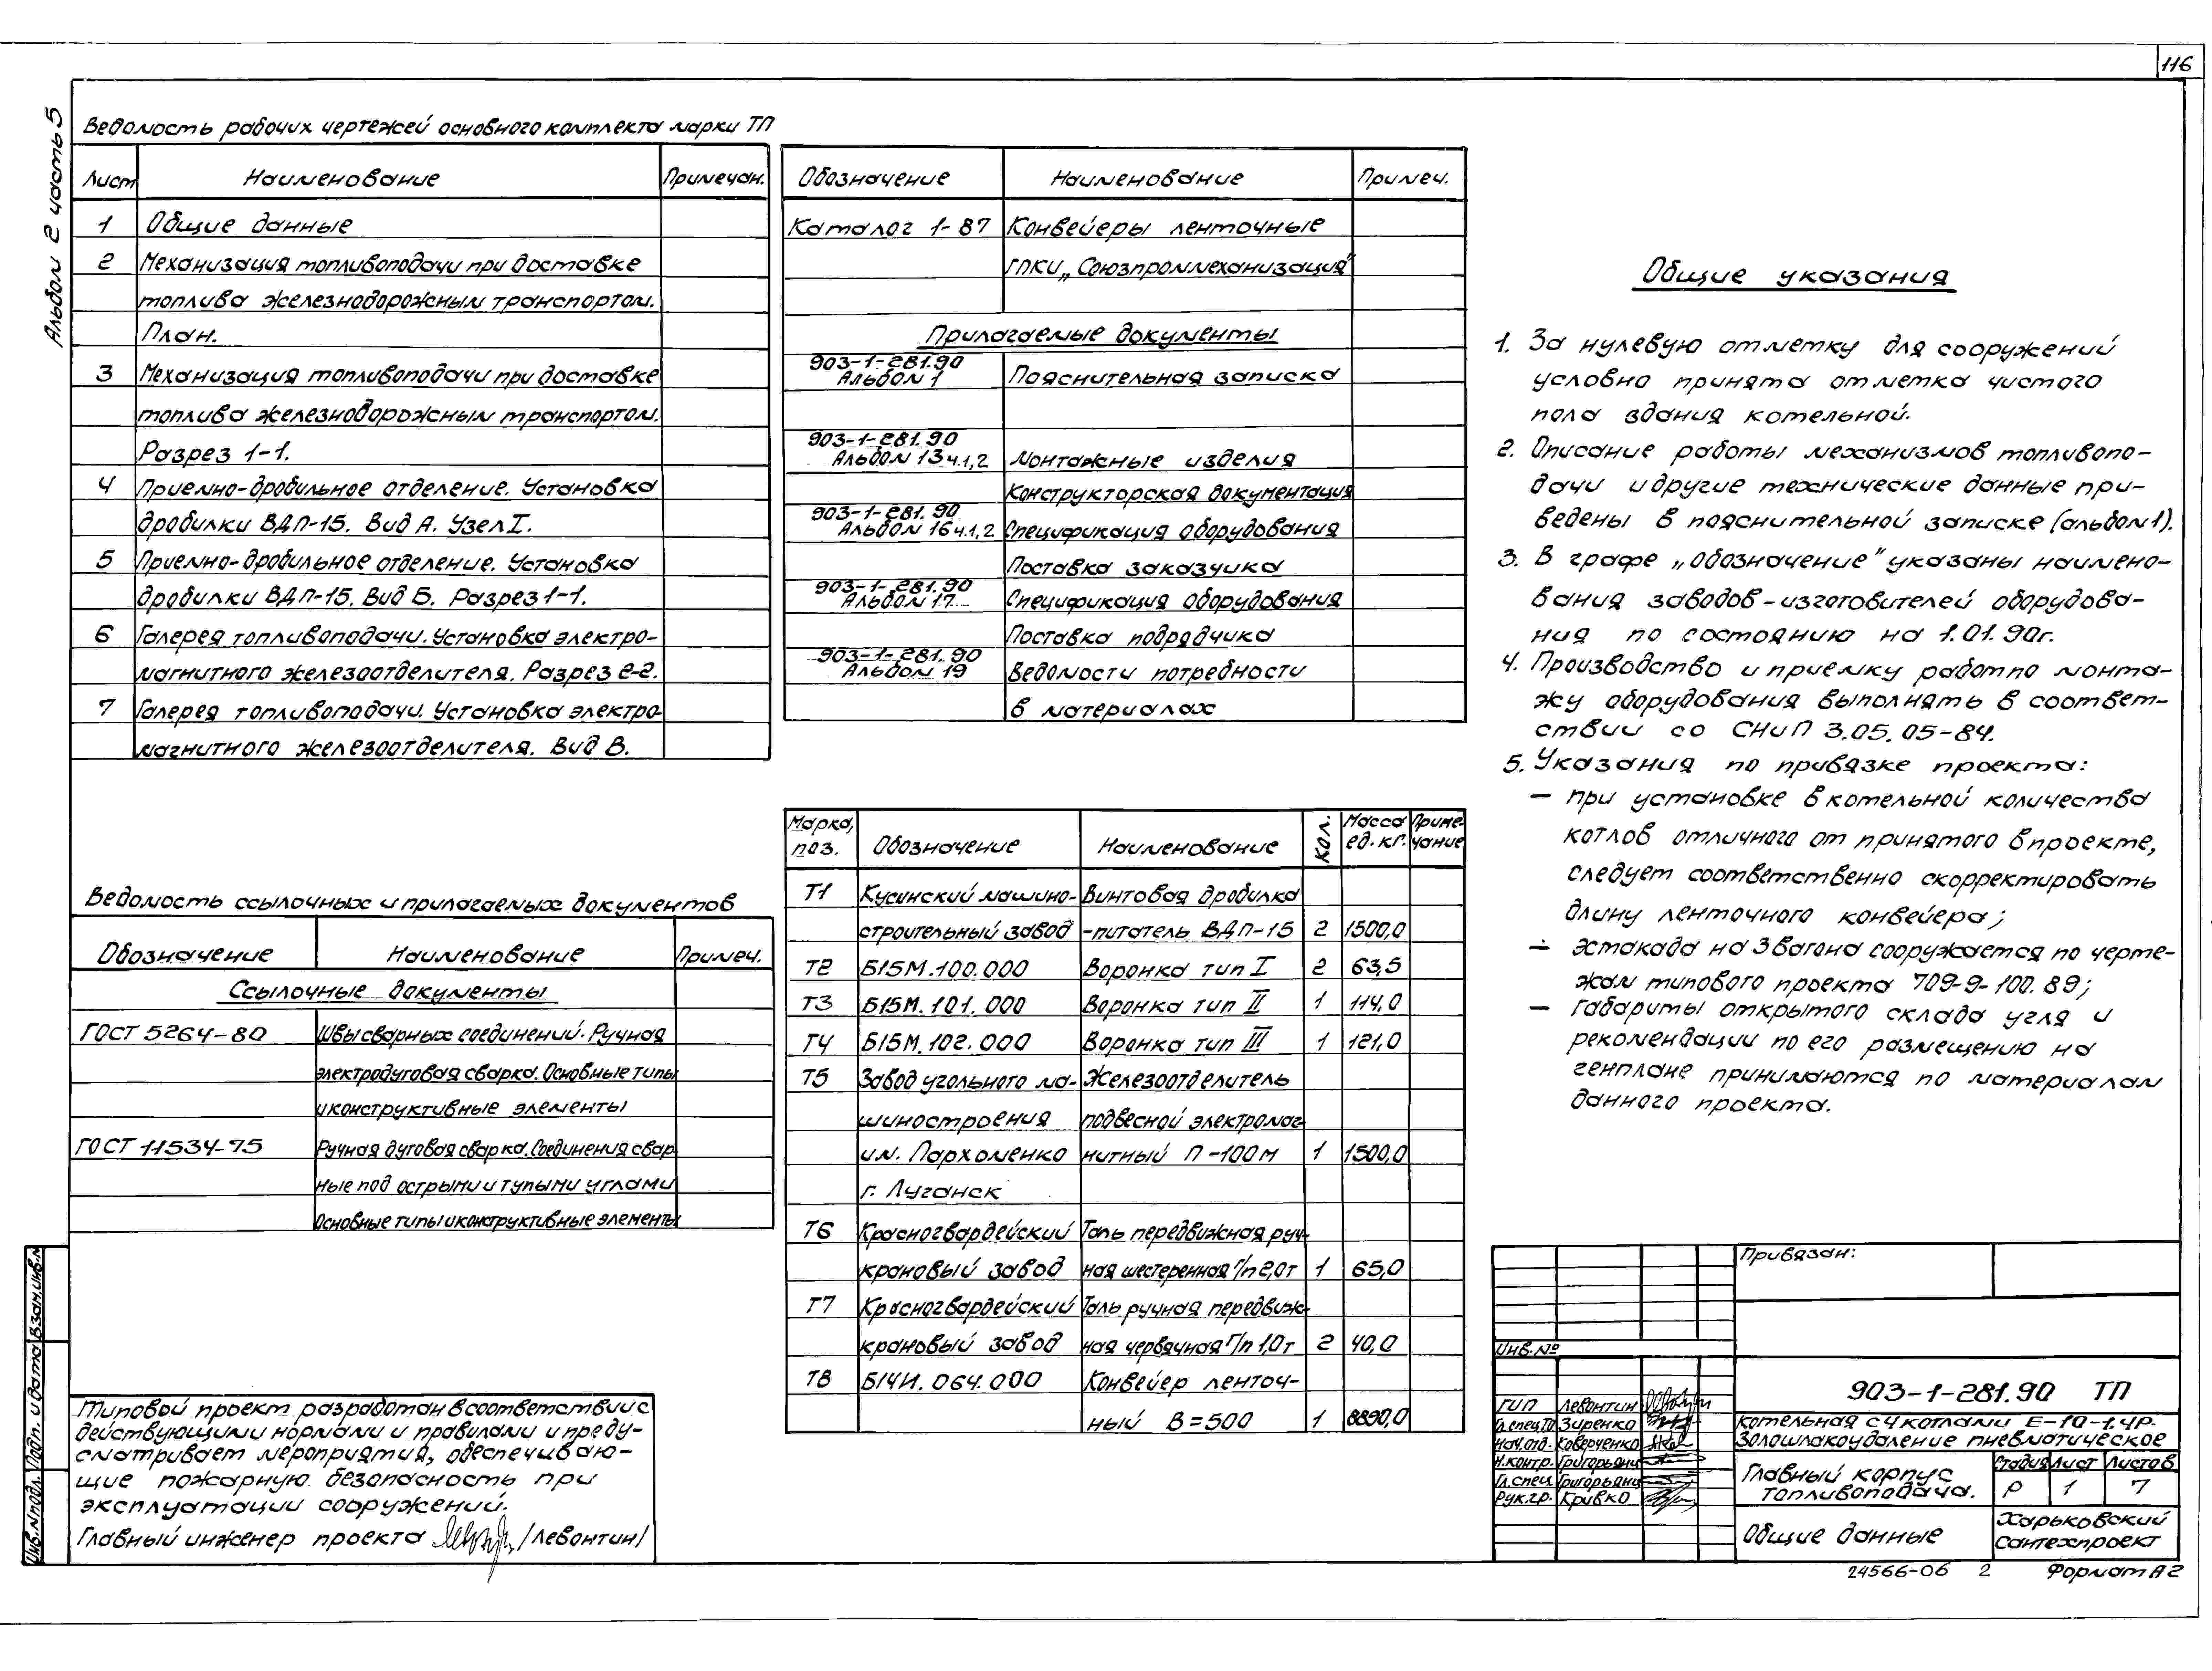 116
Альбом 2 часть 5
Ведомость рабочих чертежей основного комплекта марки ТП
Лист Наименование Примечан.
1 Общие данные
2 Механизация топливоподачи при доставке
топлива железнодорожным транспортом.
План.
3 Механизация топливоподачи при доставке
топлива железнодорожным транспортом.
Разрез 1-1.
4 Приемно-дробильное отделение. Установка
дробилки ВДП-15. Вид А. Узел I.
5 Приемно-дробильное отделение. Установка
дробилки ВДП-15. Вид Б. Разрез 1-1.
6 Галерея топливоподачи. Установка электро-
магнитного железоотделителя. Разрез 2-2.
7 Галерея топливоподачи. Установка электро-
магнитного железоотделителя. Вид В.
Ведомость ссылочных и прилагаемых документов
Обозначение Наименование Примеч.
Ссылочные документы
ГОСТ 5264-80 Швы сварных соединений. Ручная
электродуговая сварка. Основные типы
и конструктивные элементы
ГОСТ 11534-75 Ручная дуговая сварка. Соединения свар
ные под острыми и тупыми углами
Основные типы и конструктивные элементы
Типовой проект разработан в соответствии с
действующими нормами и правилами и преду-
сматривает мероприятия, обеспечиваю-
щие пожарную безопасность при
эксплуатации сооружений.
Главный инженер проекта /Левонтин/
Обозначение Наименование Примеч.
Каталог 1-87 Конвейеры ленточные
ГПКИ „Союзпроммеханизация"
Прилагаемые документы
903-1-281.90
Альбом 1 Пояснительная записка
903-1-281.90
Альбом 13 ч.1,2 Монтажные изделия
Конструкторская документация
903-1-281.90
Альбом 16 ч.1,2 Спецификация оборудования
Поставка заказчика
903-1-281.90
Альбом 17 Спецификация оборудования
Поставка подрядчика
903-1-281.90
Альбом 19 Ведомости потребности
в материалах
Марка, поз. Обозначение Наименование Кол. Масса ед. кг. Приме-чание
Т1 Кусинский машино- Винтовая дробилка
строительный завод -питатель ВДП-15 2 1500,0
Т2 Б15М.100.000 Воронка тип I 2 63,5
Т3 Б15М.101.000 Воронка тип II 1 114,0
Т4 Б15М.102.000 Воронка тип III 1 121,0
Т5 Завод угольного ма- Железоотделитель
шиностроения подвесной электромаг
им. Пархоменко нитный П-100М 1 1500,0
г. Луганск
Т6 Красногвардейский Таль передвижная руч-
крановый завод ная шестеренная г/п 2,0т 1 65,0
Т7 Красногвардейский Таль ручная передвиж-
крановый завод ная червячная г/п 1,0т 2 40,0
Т8 Б14И.064.000 Конвейер ленточ-
ный В=500 1 8890,0
Общие указания
1. За нулевую отметку для сооружений
условно принята отметка чистого
пола здания котельной.
2. Описание работы механизмов топливопо-
дачи и другие технические данные при-
ведены в пояснительной записке (альбом 1).
3. В графе „Обозначение" указаны наимено-
вания заводов-изготовителей оборудова-
ния по состоянию на 1.01.90г.
4. Производство и приемку работ по монта-
жу оборудования выполнять в соответ-
ствии со СНиП 3.05.05-84.
5. Указания по привязке проекта:
— при установке в котельной количества
котлов отличного от принятого в проекте,
следует соответственно скорректировать
длину ленточного конвейера;
— эстакада на 3 вагона сооружается по черте-
жам типового проекта 709-9-100.89;
— габариты открытого склада угля и
рекомендации по его размещению на
генплане принимаются по материалам
данного проекта.
Привязан:
Инв.№
903-1-281.90 ТП
ГИП Левонтин
Гл.спец.ТО Зиренко
Нач.отд. Коверченко
Н.контр. Григорьянц
Гл.спец Григорьянц
Рук.гр. Кривко
Котельная с 4 котлами Е-10-1.4Р.
Золошлакоудаление пневматическое
Главный корпус
Топливоподача.
Стадия Лист Листов
Р 1 7
Общие данные
Харьковский
Сантехпроект
24566-06 2 Формат А2
Инв.№подл. Подп. и дата Взам.инв.№